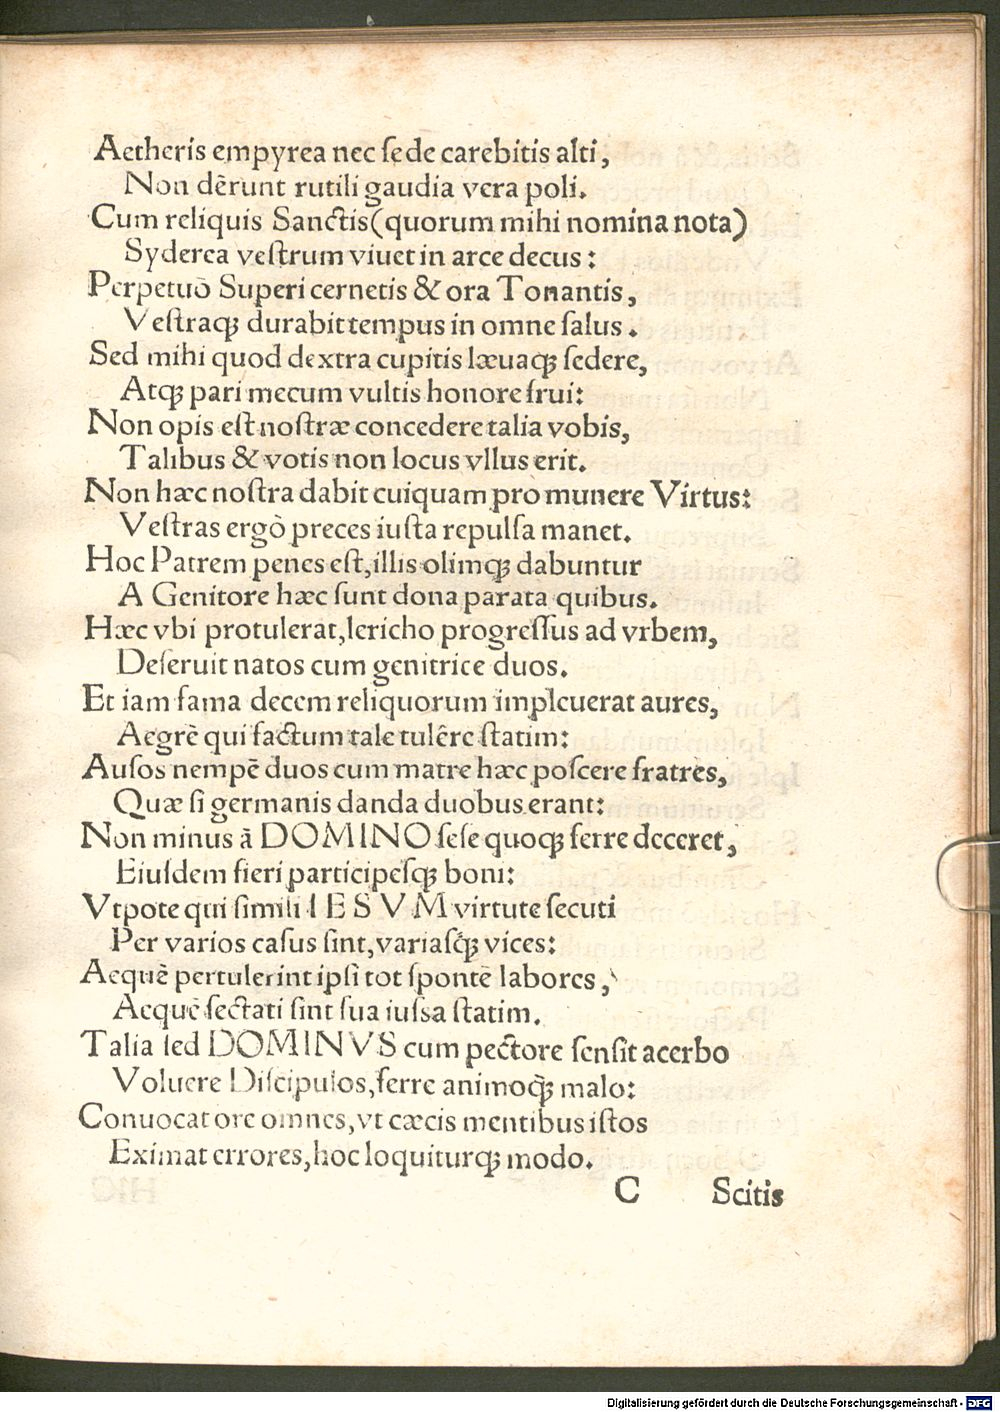 Aetheris empyrea nec sede carebitis alti,
Non dẽrunt rutili gaudia vera poli.
Cum reliquis Sanctis (quorum mihi nomina nota)
Syderea vestrum viuet in arce decus:
Perpetuò Superi cernetis & ora Tonantis,
Vestraq; durabit tempus in omne salus.
Sed mihi quod dextra cupitis læuaq; sedere,
Atq; pari mecum vultis honore frui:
Non opis est nostræ concedere talia vobis,
Talibus & votis non locus vllus erit.
Non hæc nostra dabit cuiquam pro munere Virtus:
Vestras ergò preces iusta repulsa manet.
Hoc Patrem penes est, illis olimq; dabuntur
A Genitore hæc sunt dona parata quibus.
Hæc vbi protulerat, Iericho progressus ad vrbem,
Deseruit natos cum genitrice duos.
Et iam fama decem reliquorum impleuerat aures,
Aegrè qui factum tale tulêre statim:
Ausos nempè duos cum matre hæc poscere fratres,
Quæ si germanis danda duobus erant:
Non minus à DOMINO sese quoq; ferre deceret,
Eiusdem fieri participesq; boni:
Vtpote qui simili IESVM virtute secuti
Per varios casus sint, variasq́; vices:
Aequè pertulerint ipsi tot spontè labores,
Aequè sectati sint sua iussa statim.
Talia sed DOMINVS cum pectore sensit acerbo
Voluere Discipulos, ferre animoq̀; malo:
Conuocat ore omnes, vt cæcis mentibus istos
Eximat errores, hoc loquiturq; modo.
C Scitis
Digitalisierung gefördert durch die Deutsche Forschungsgemeinschaft - DFG